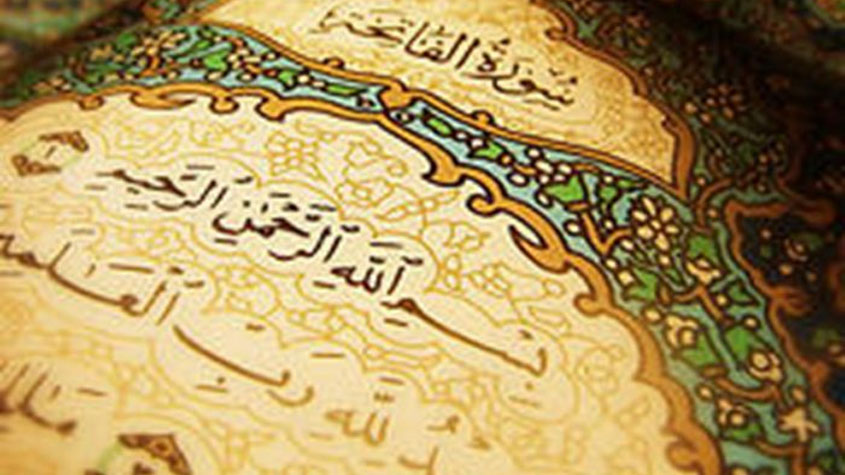 سُورَةُ الْفَاتِحَةِ
بِسْمِ ٱللَّهِ ٱلرَّحْمَٰنِ ٱلرَّحِيمِ ١
لِلَّهِ رَبِّ ٱلْعَٰلَمِينَ
مَٰلِكِ